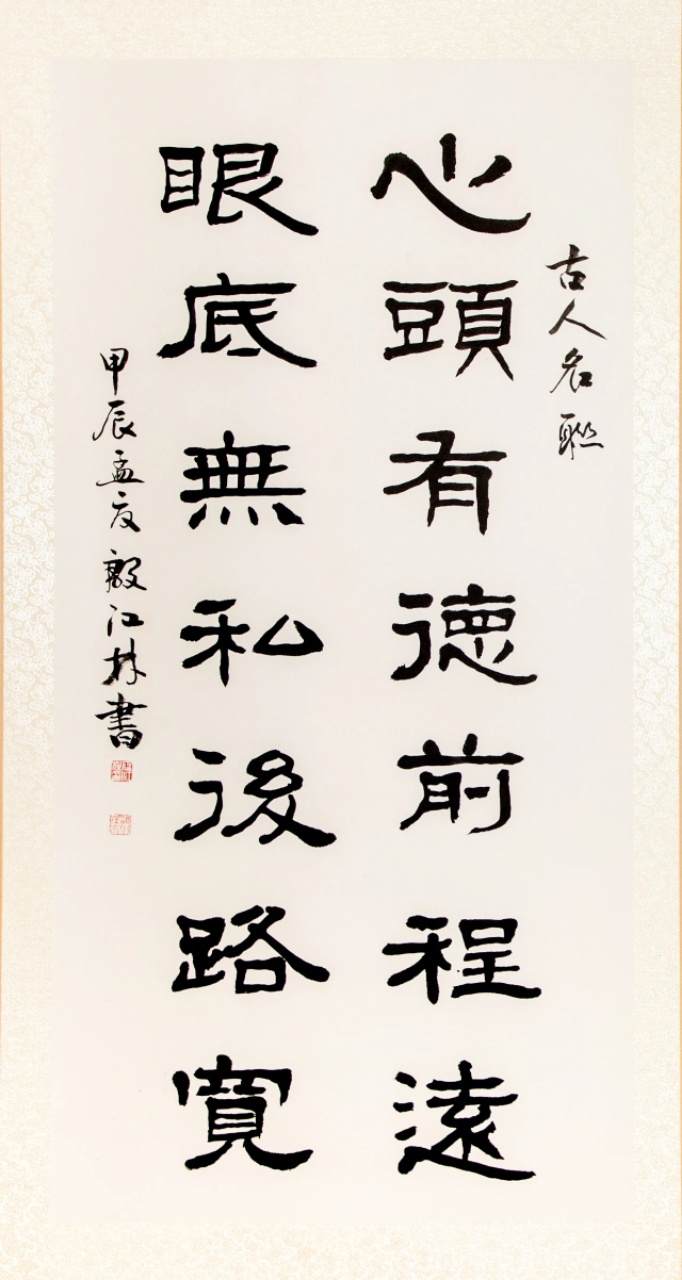 古人名聯
心頭有德前程遠
眼底無私後路寬
甲辰孟夏殷江林書